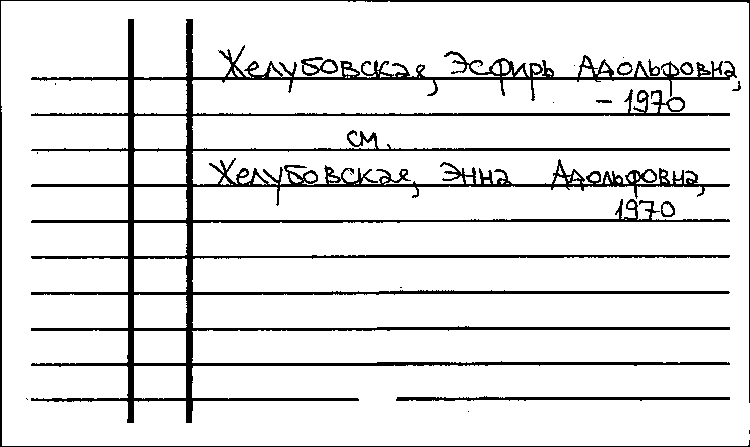 Желубовская, Эсфирь Адольфовна,
– 1970
см.
Желубовская, Энна Адольфовна,
1970